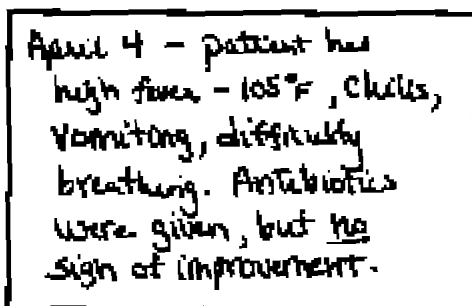 April 4 - patient has
high fever - 105°F, chills,
vomiting, difficulty
breathing. Antibiotics
were given, but no
sign of improvement.